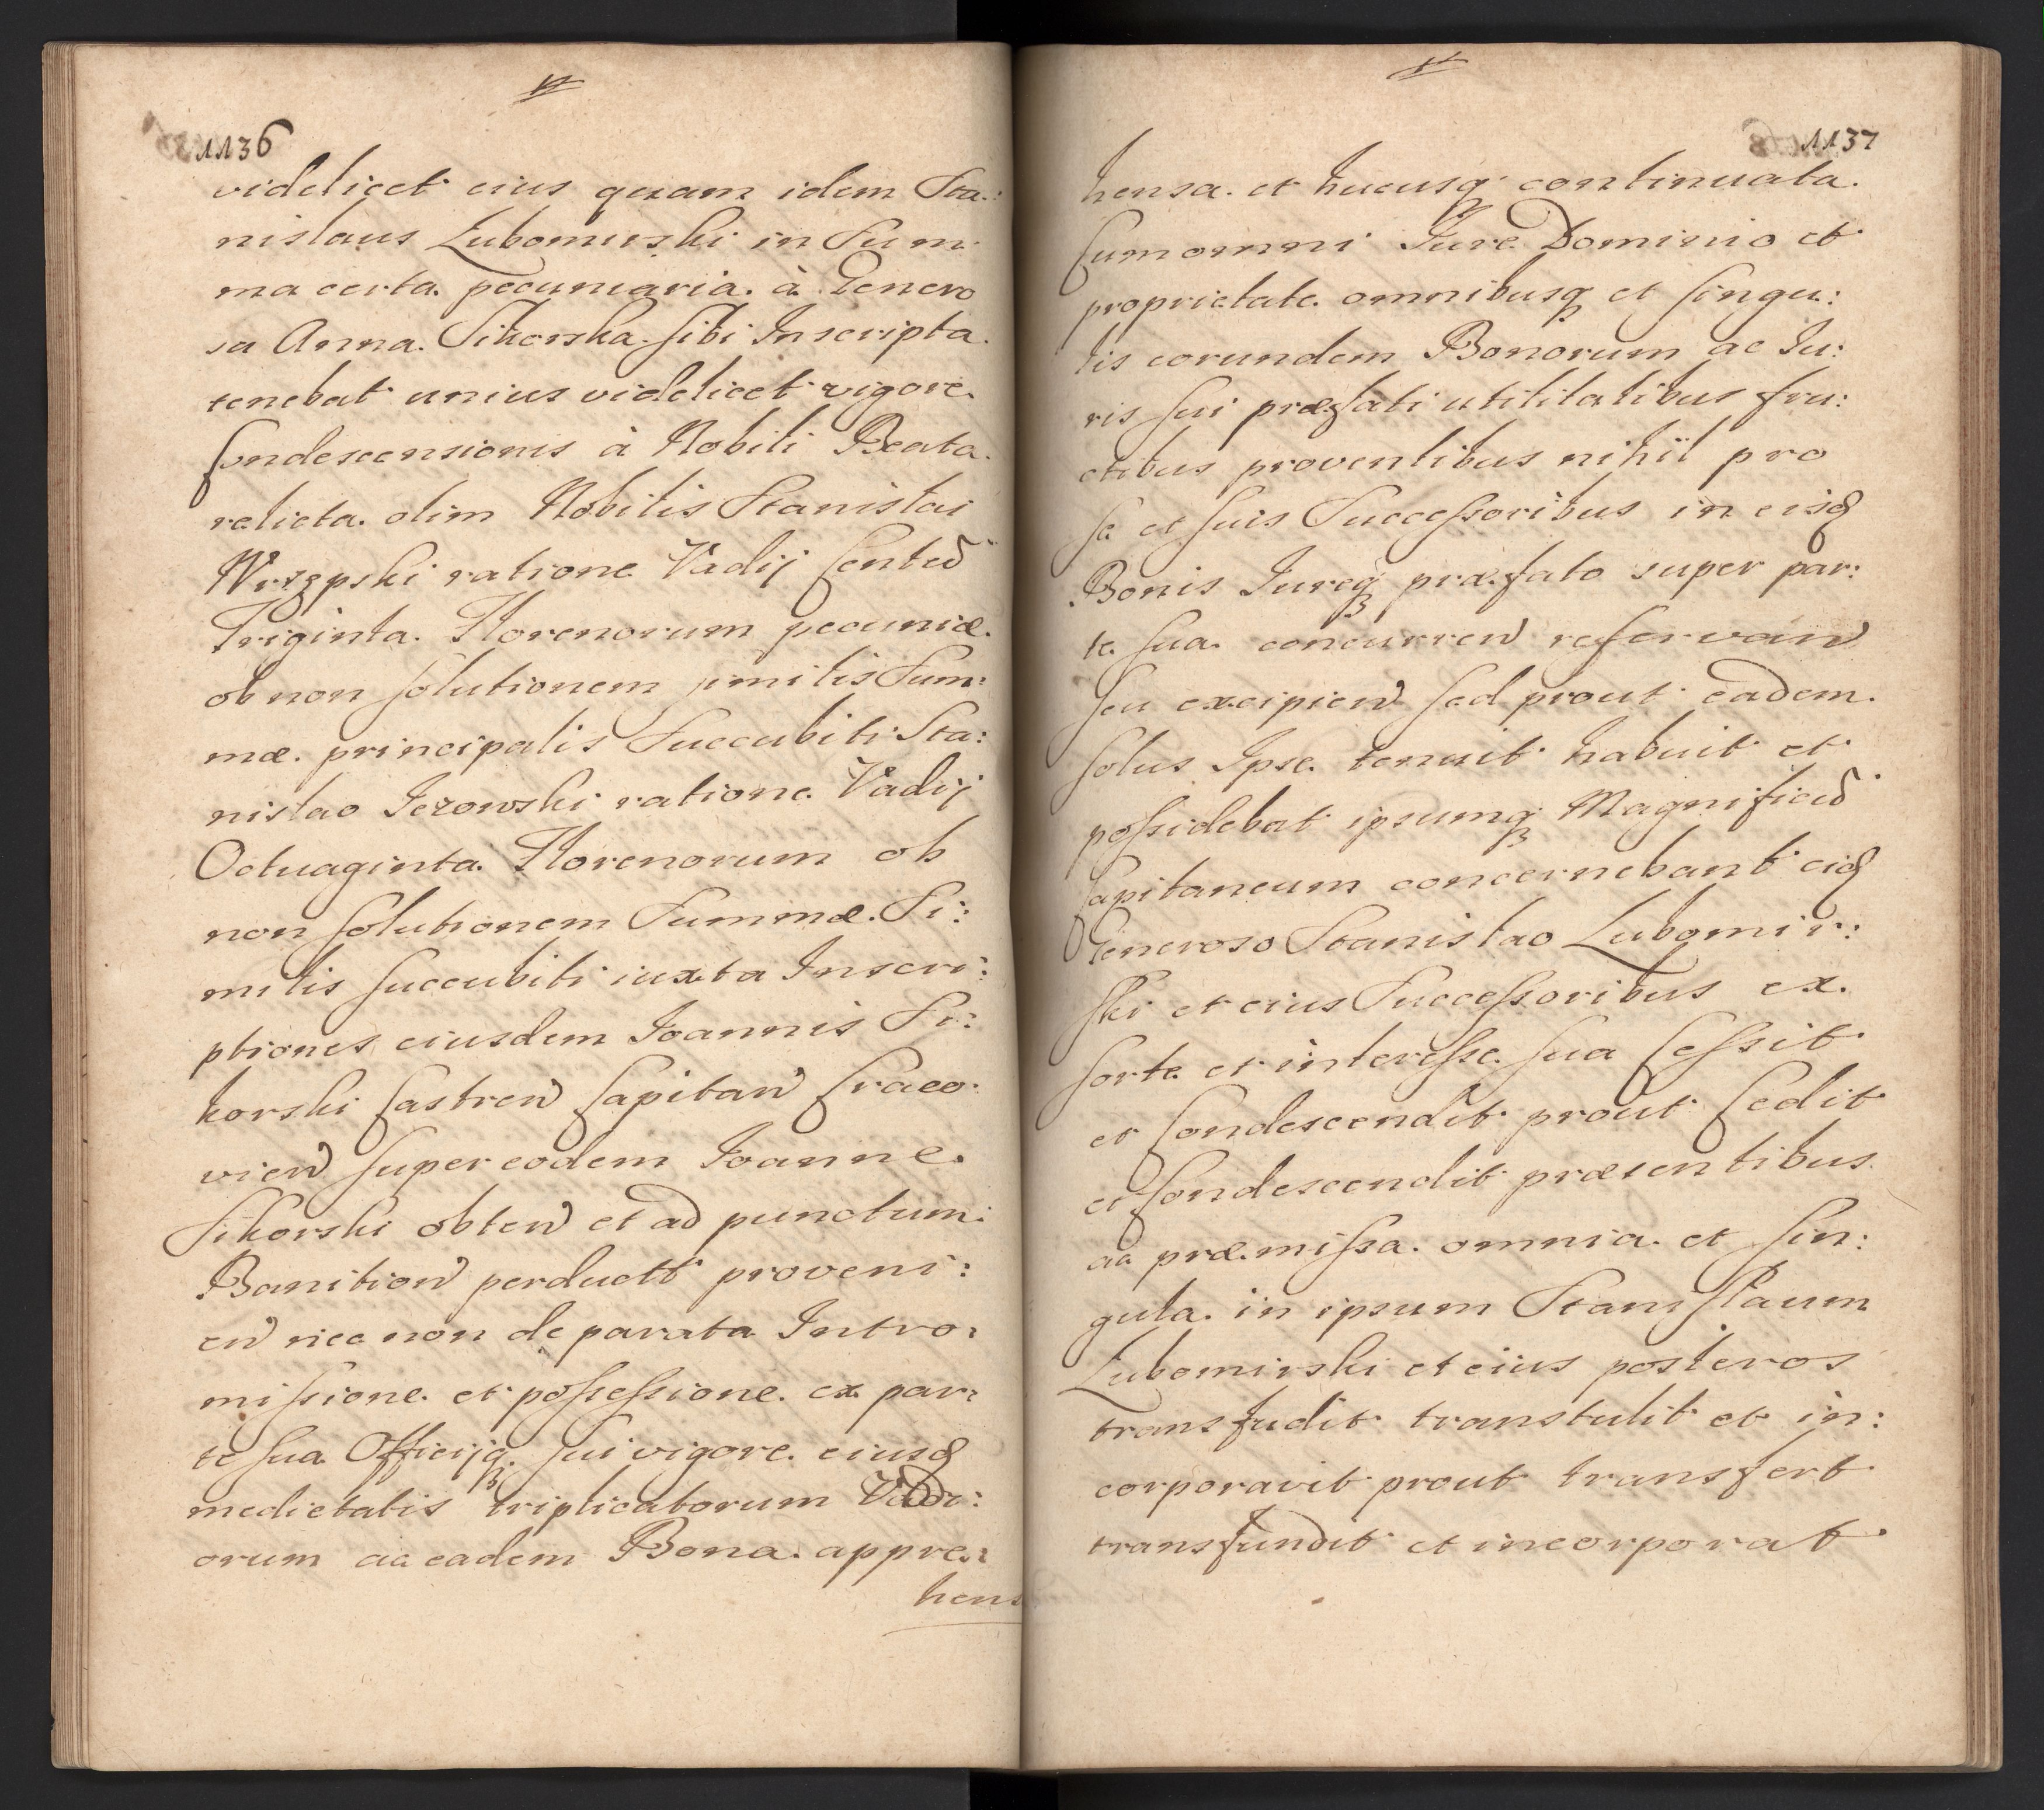 1136
videlicet eius quam idem Sta:
nislaus Lubomirski in Sum
ma certa pecuniaria à Genero
sa Anna Sikorska sibi Inscripta
tenebat unius videlicet vigore
Condescensionis à Nobili Beata
relicta olim Nobilis Stanislai
ratione Vadij Centũ
Triginta Florenorum pecuniæ
ob non solutionem similis Sum:
mæ principalis Succubiti Sta:
nislao Jezowski ratione Vadij
Octuaginta Florenorum ob
non solutionem Summæ Si:
milis succubiti iuxta Inscri:
ptiones eiusdem Joannis Si:
korski Castren Capitan Craco
vien super eodem Joanne
Sikorski obten et ad punctum
Banition perductt proveni:
en nec non de parata Intro:
missione et possessione ex par:
te sua Officijq sui vigore eiusd
medietatis triplicatorum Vadi:
orum ad eadem Bona appre:
hens
1137
hensa et hucusq continuata
Cum omni Jure Dominio et
proprietate omnibusq et singu:
lis eorundem Bonorum ac Ju:
ris sui præfati utilitatibus fru:
ctibus proventibus nihil pro
se et suis Successoribus in eisd
Bonis Jureq præfato super par:
te sua concurren reservan
seu excipien sed prout eadem
solus Ipse tenuit habuit et
possidebat ipsumq Magnificũ
Capitaneum concernebant eid
Generoso Stanislao Lubomir:
ski et eius Successoribus ex
sorte et interesse sua Cessit
et Condescendit prout Cedit
et Condescendit præsentibus
ac præmissa omnia et sin:
gula in ipsum Stanislaum
Lubomirski et eius posteros
transfudit transtulit et in:
corporavit prout transfert
transfundit et incorporat